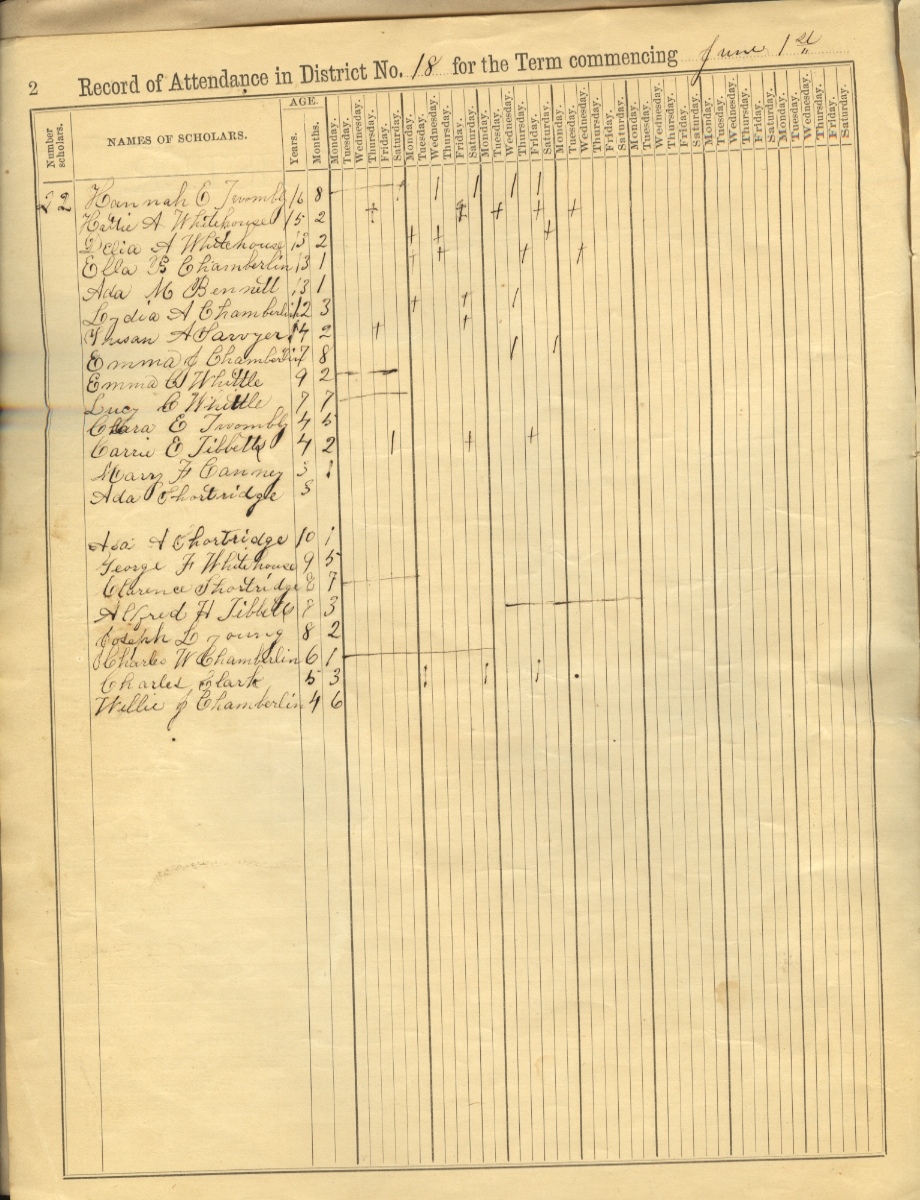 2 Record of Attendance in District No. 18 for the Term commencing June 1st
Number scholars. NAMES OF SCHOLARS. AGE. Years. Months. Monday. Tuesday. Wednesday. Thursday. Friday. Saturday. Monday. Tuesday. Wednesday. Thursday. Friday. Saturday. Monday. Tuesday. Wednesday. Thursday. Friday. Saturday. Monday. Tuesday. Wednesday. Thursday. Friday. Saturday. Monday. Tuesday. Wednesday. Thursday. Friday. Saturday. Monday. Tuesday. Wednesday. Thursday. Friday. Saturday. Monday. Tuesday. Wednesday. Thursday. Friday. Saturday.
22 Hannah E Twombly 16 8
Hattie A Whitehouse 15 2
Delia A Whitehouse 13 2
Ella B Chamberlin 13 1
Ada M Bennett 13 1
Lydia A Chamberlin 12 3
Susan A Sawyer 14 2
Emma J Chamberlin 7 8
Emma C Whittle 9 2
Lucy C Whittle 7 7
Clara E Twombly 4 5
Carrie E Tibbetts 4 2
Mary F Canney 3 1
Ada Shortridge 3
Asa A Shortridge 10 1
George F Whitehouse 9 5
Clarence Shortridge 8 7
Alfred H Tibbets 8 3
Joseph L Young 8 2
Charles W Chamberlin 6 1
Charles Clark 5 3
Willie J Chamberlin 4 6